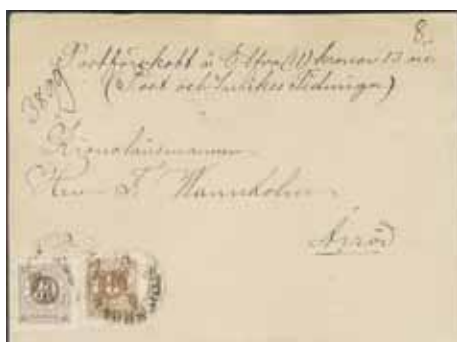 8.
Postförskott à Elfva (11) kronor 13 öre
(Post och Inrikes Tidningar)
3899
Kronolänsmannen
Herr F. Wannholm